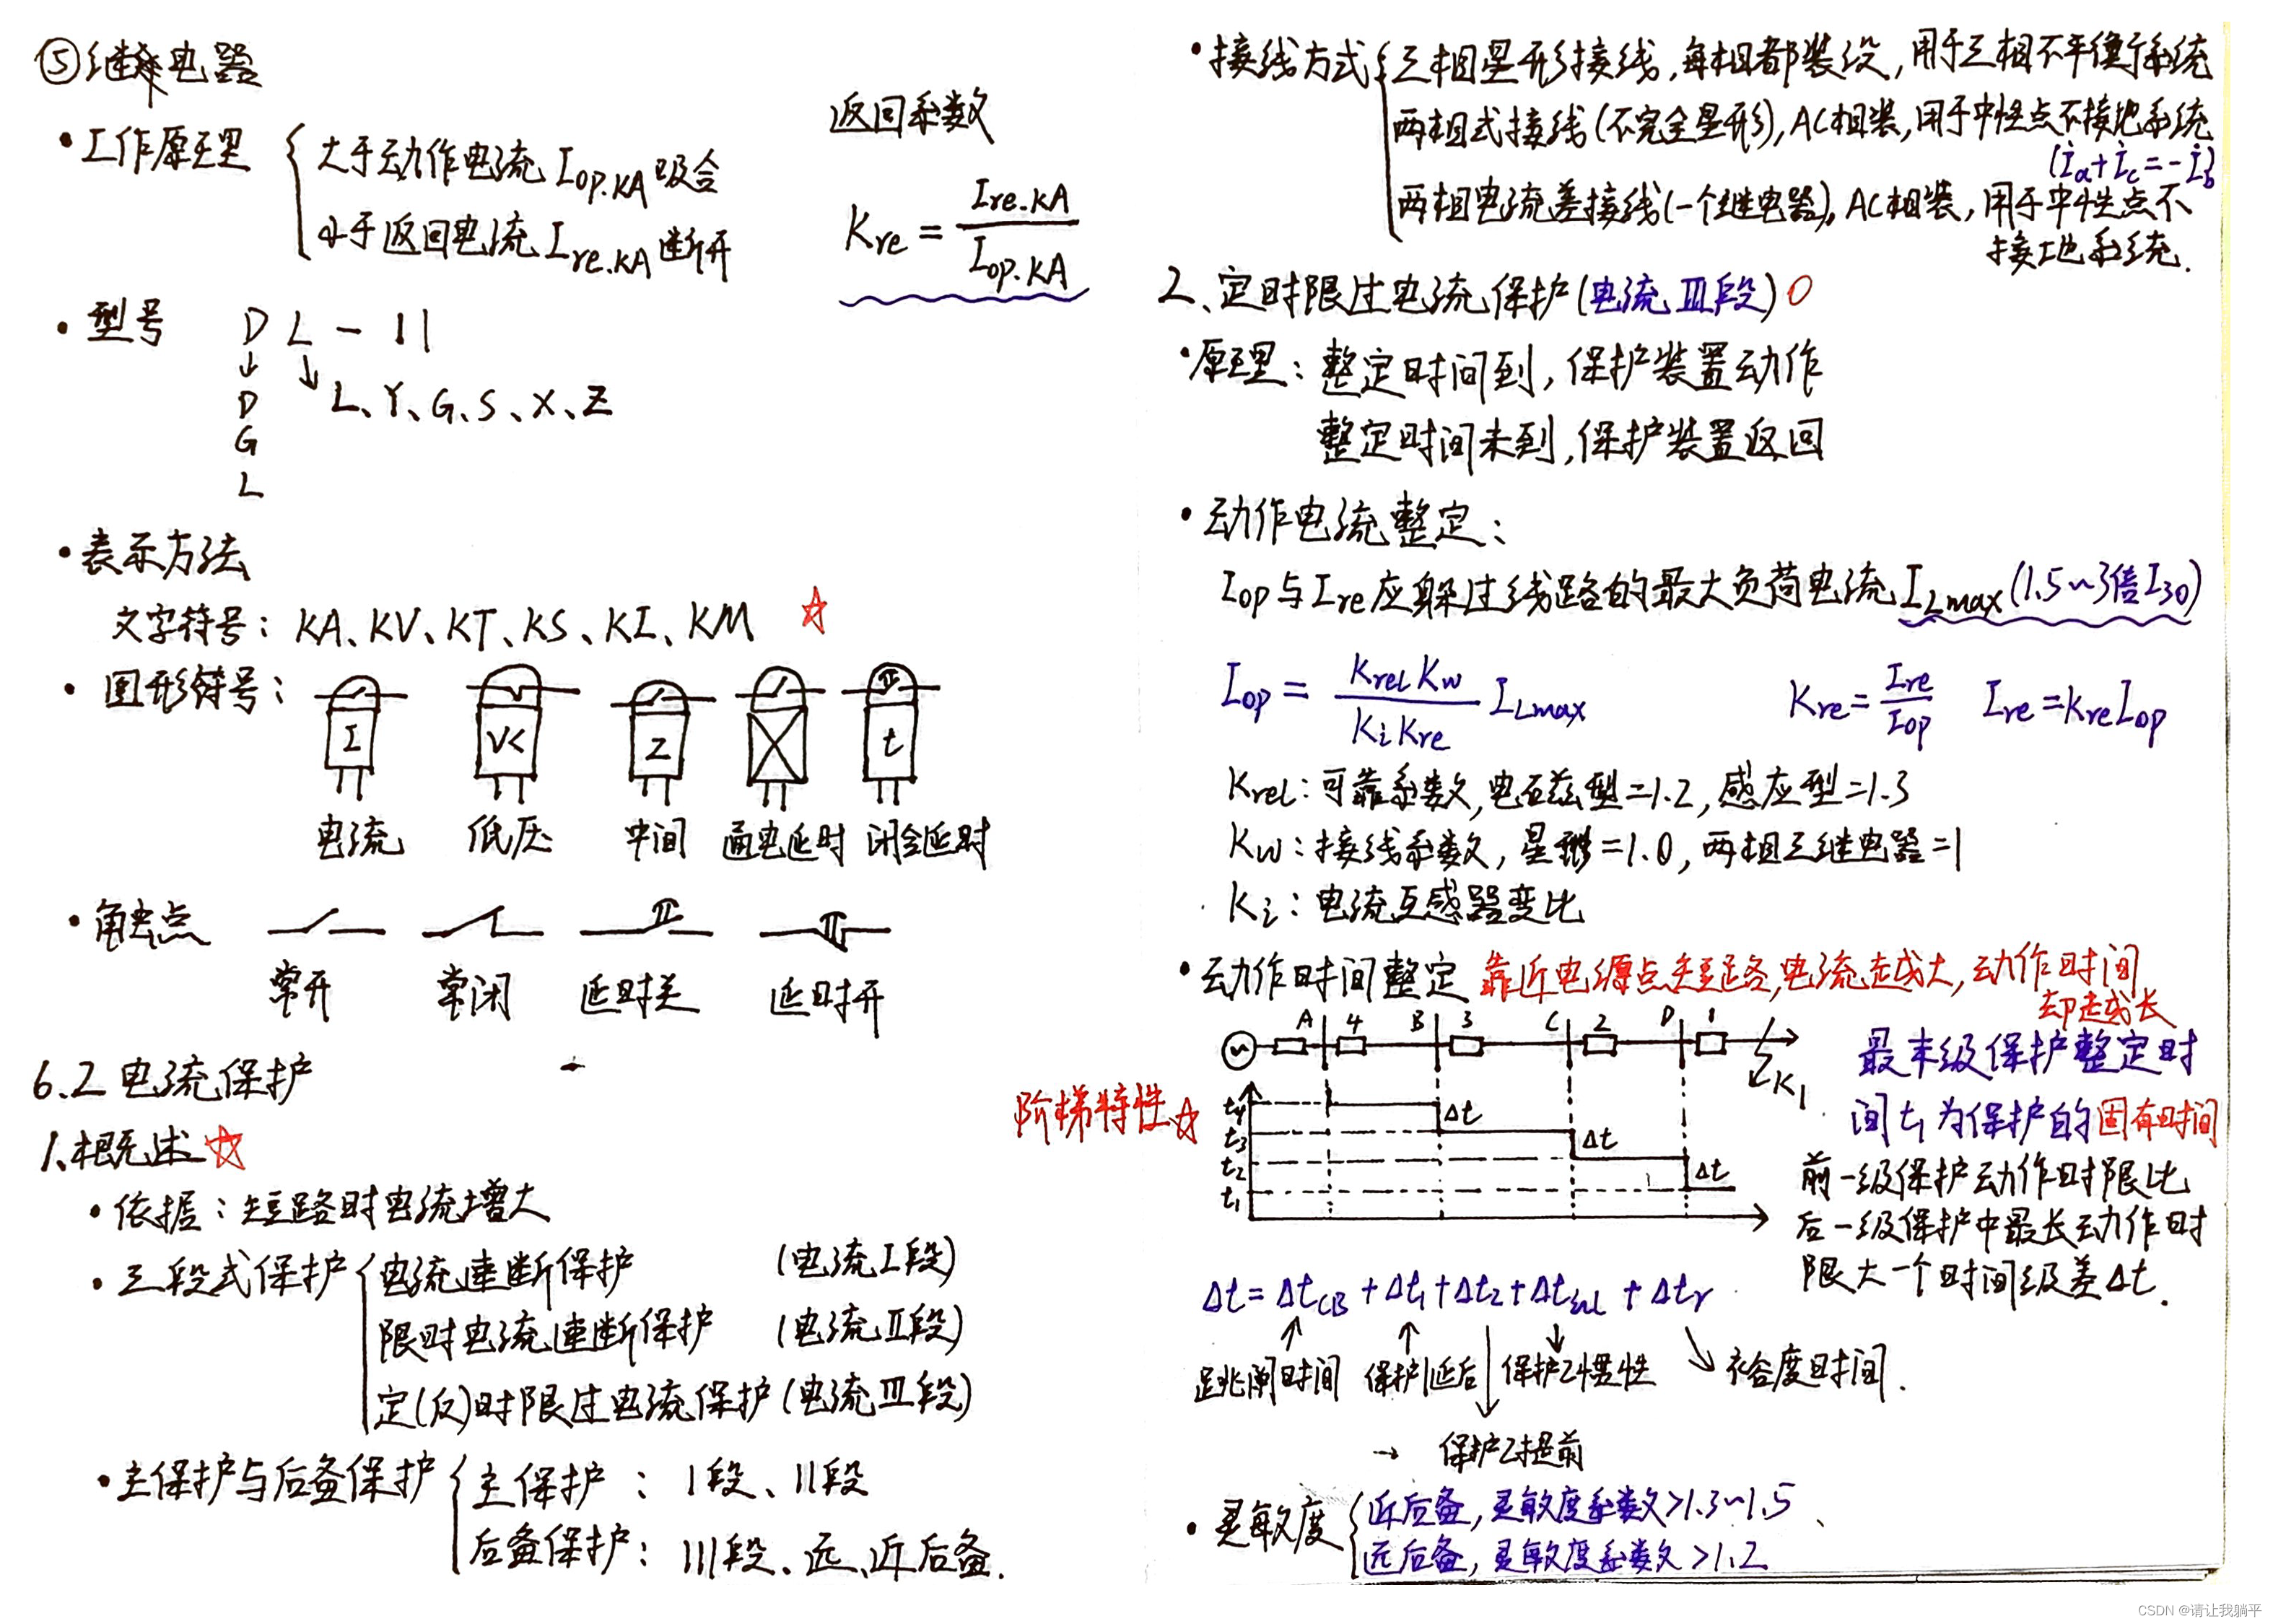 ⑤继电器
·工作原理 { 大于动作电流 Iop.KA 吸合
小于返回电流 Ire.KA 断开
返回系数
Kre = Ire.KA / Iop.KA
·型号 D L - 11
↓ ↘
D L、Y、G、S、X、Z
G
L
·表示方法
文字符号: KA、KV、KT、KS、KI、KM ☆
·图形符号:
I V< Z t
电流 低压 中间 通电延时 闭合延时
·触点
常开 常闭 延时关 延时开
6.2 电流保护
1.概述 ☆
·依据: 短路时电流增大
·三段式保护 { 电流速断保护 (电流I段)
限时电流速断保护 (电流II段)
定(反)时限过电流保护 (电流III段)
·主保护与后备保护 { 主保护: I段、II段
后备保护: III段、远、近后备.
·接线方式 { 三相星形接线, 每相都装设, 用于三相不平衡系统
两相式接线(不完全星形), AC相装, 用于中性点不接地系统
(İa+İc=-İb)
两相电流差接线(一个继电器), AC相装, 用于中性点不
接地系统.
2、定时限过电流保护(电流III段)○
·原理: 整定时间到, 保护装置动作
整定时间未到, 保护装置返回
·动作电流整定:
Iop与Ire应躲过线路的最大负荷电流ILmax(1.5~3倍I30)
Iop = KrelKw / KiKre ILmax Kre = Ire / Iop Ire = KreIop
Krel: 可靠系数, 电磁型=1.2, 感应型=1.3
Kw: 接线系数, 星形=1.0, 两相三继电器=1
Ki: 电流互感器变比
·动作时间整定 靠近电源点短路, 电流越大, 动作时间
却越长
A 4 B 3 C 2 D 1
K1
阶梯特性☆
t4 Δt
t3 Δt
t2 Δt
t1
最末级保护整定时
间t1为保护的固有时间
前一级保护动作时限比
后一级保护中最长动作时
限大一个时间级差Δt.
Δt = ΔtCB + Δt1 + Δt2 + Δt + Δtr
跳闸时间 保护1延后 保护2惯性 裕度时间.
→ 保护2提前
·灵敏度 { 近后备, 灵敏度系数>1.3~1.5
远后备, 灵敏度系数>1.2
CSDN @请让我躺平